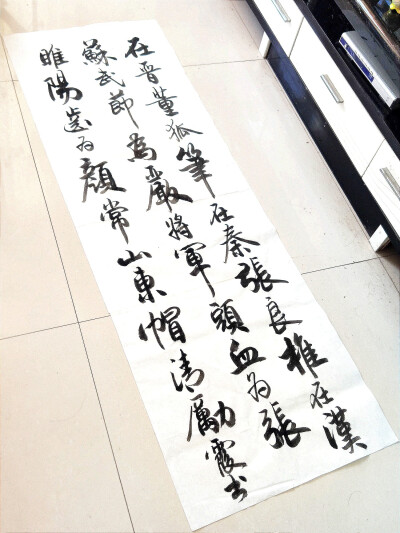 在晋董狐筆在秦張良椎在漢
蘇武節為嚴將軍頭血为張
睢陽齒为顏常山東帽清勵霞书